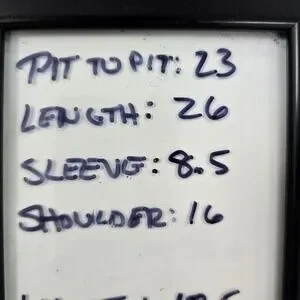 PIT TO PIT: 23
LENGTH: 26
SLEEVE: 8.5
SHOULDER: 16